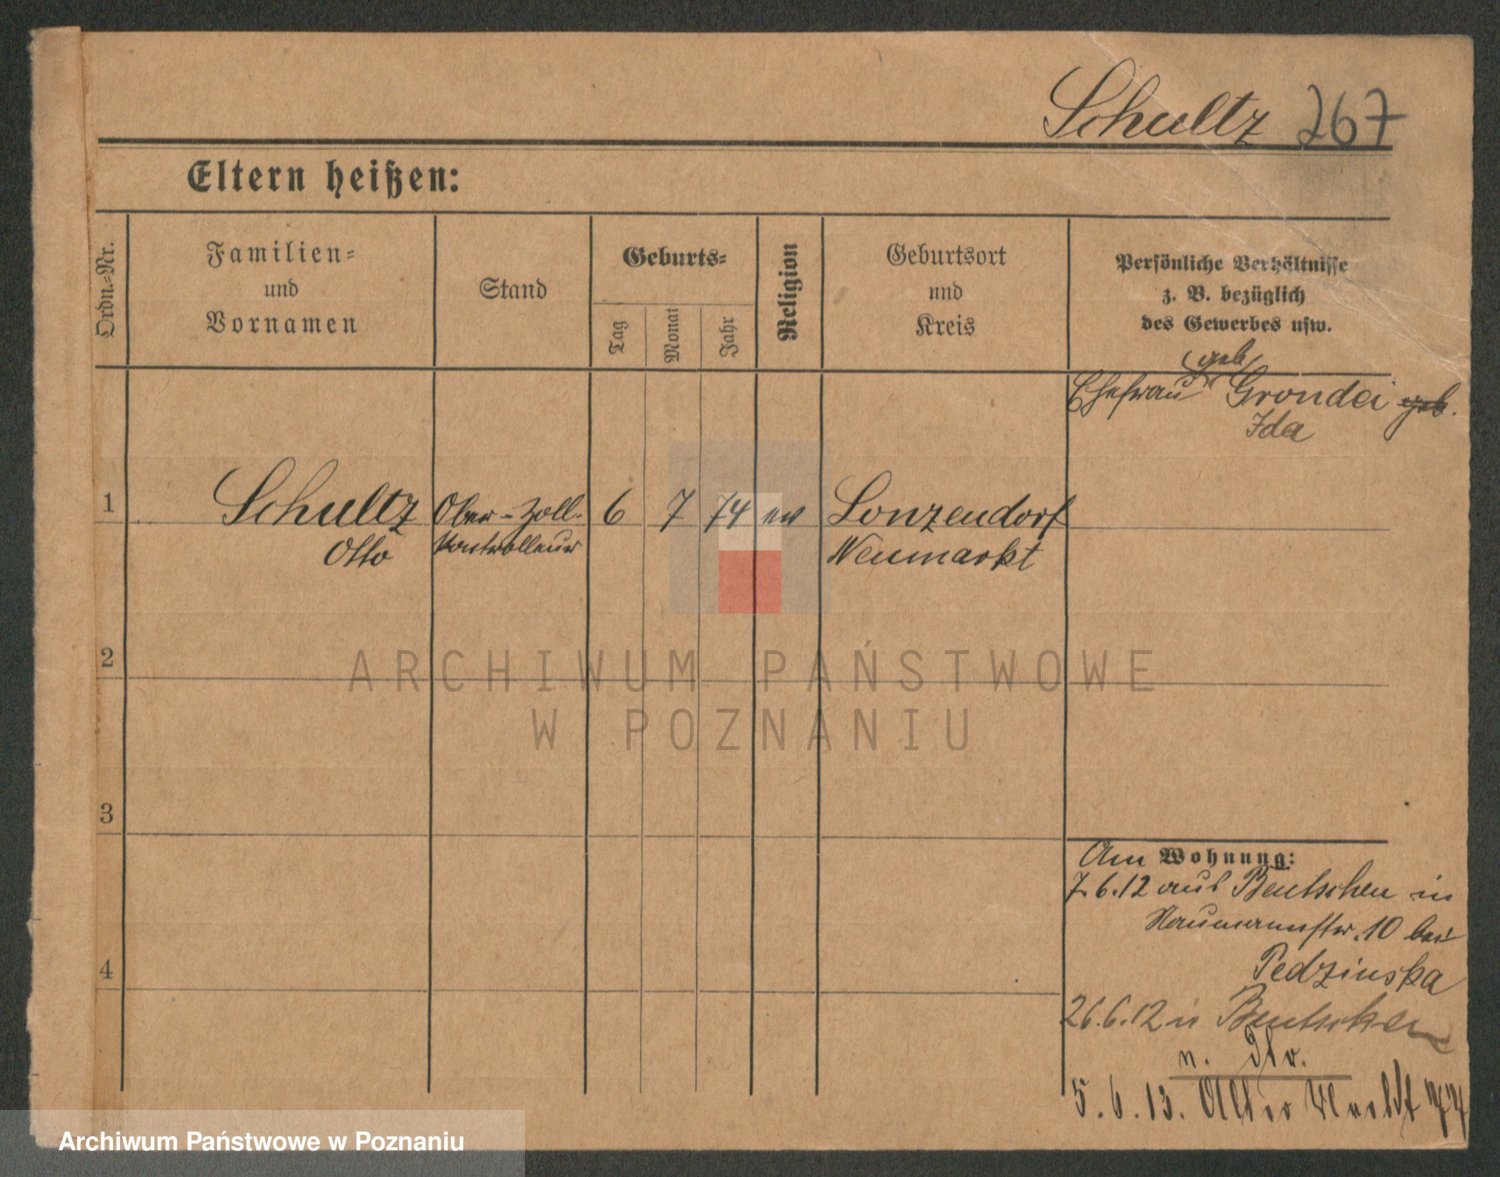 Schultz 267
Eltern heißen:
Ordn.-Nr.
Familien-
und
Vornamen
Stand
Geburts-
Tag
Monat
Jahr
Religion
Geburtsort
und
Kreis
Persönliche Verhältnisse
z. B. bezüglich
des Gewerbes usw.
(geb)
Ehefrau Grondei geb.
Ida
1 Schultz Ober-Zoll- 6 7 74 ev Lonzendorf
Otto Kontrolleur Neumarkt
2
3
4
Am Wohnung:
7.6.12 aus Bentschen in
Naumannstr. 10 bei
Pedzinska
26.6.12 n Bentschen
5.6.13.
ARCHIWUM PAŃSTWOWE
W POZNANIU
Archiwum Państwowe w Poznaniu